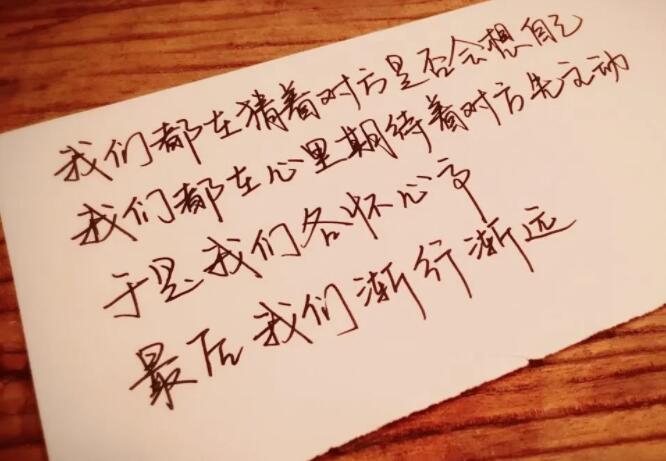 我们都在猜着对方是否会想自己
我们都在心里期待着对方先主动
于是我们各怀心事
最后我们渐行渐远